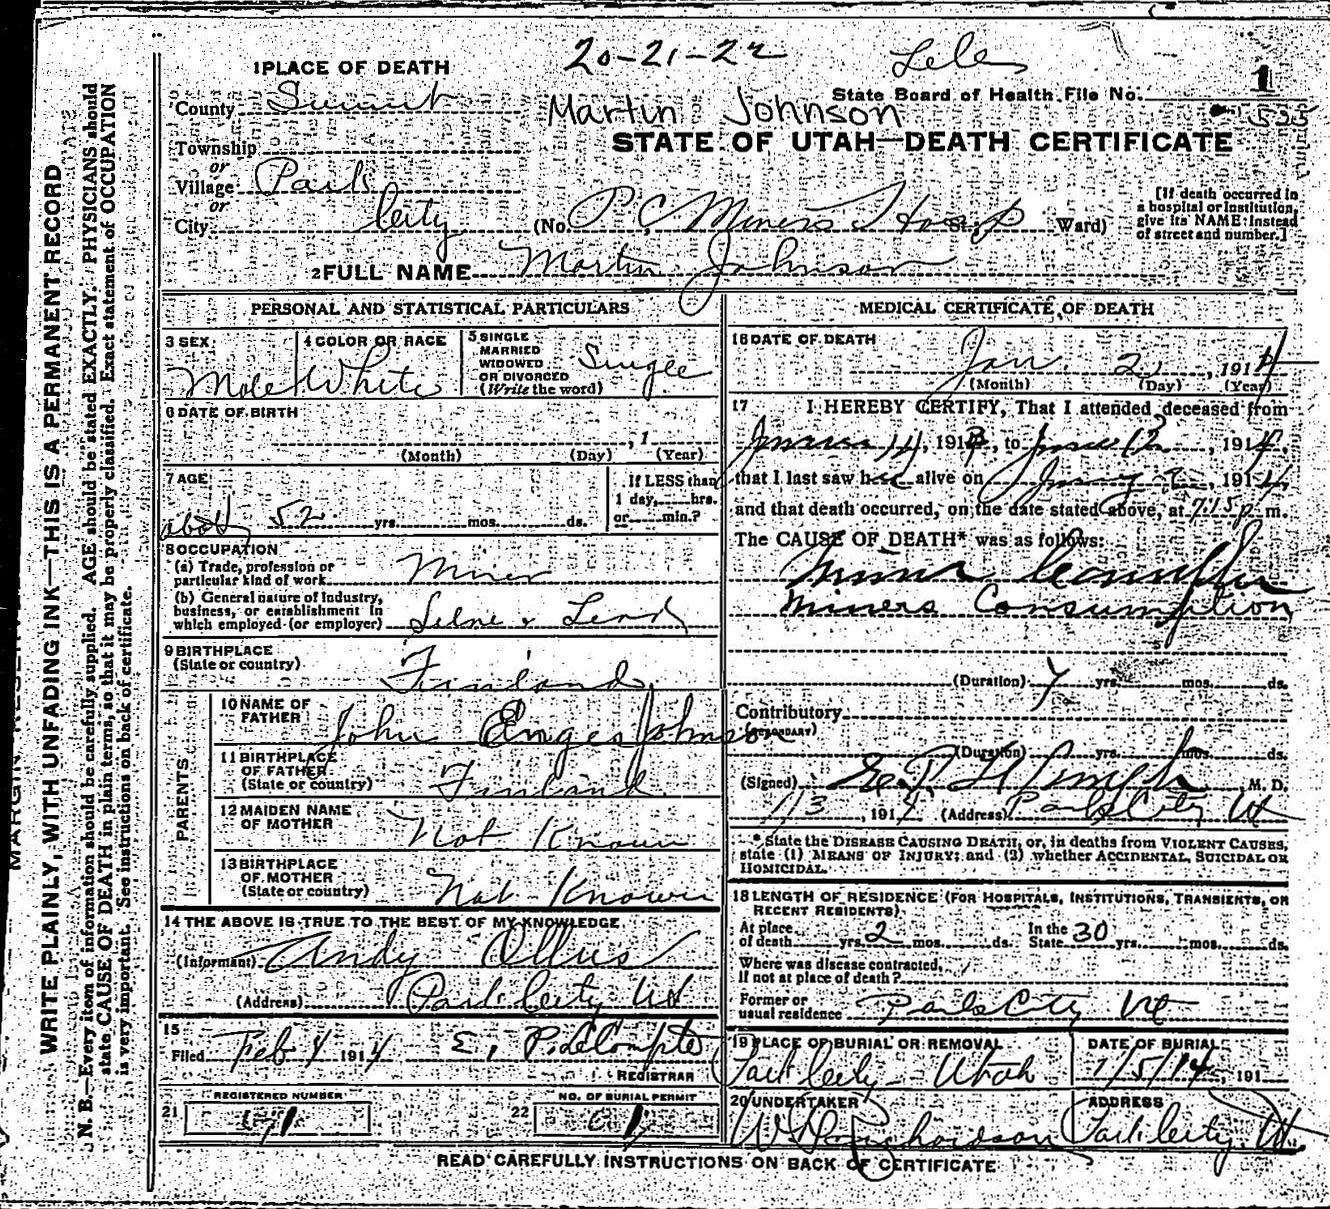 20-21-22
1 PLACE OF DEATH
County Summit
State Board of Health File No. 1
Martin Johnson
535
STATE OF UTAH—DEATH CERTIFICATE
Township
or
Village Park
or
City City
(No. P. C. Miners Hosp St., Ward)
[If death occurred in
a hospital or institution,
give its NAME instead
of street and number.]
2 FULL NAME Martin Johnson
PERSONAL AND STATISTICAL PARTICULARS
3 SEX Male
4 COLOR OR RACE White
5 SINGLE
MARRIED
WIDOWED
OR DIVORCED
(Write the word) Single
6 DATE OF BIRTH
, 1
(Month) (Day) (Year)
7 AGE
about 52 yrs. mos. ds.
If LESS than
1 day, hrs.
or min.?
8 OCCUPATION
(a) Trade, profession or
particular kind of work Miner
(b) General nature of Industry,
business, or establishment in
which employed (or employer)
9 BIRTHPLACE
(State or country) Finland
PARENTS
10 NAME OF
FATHER John Johnson
11 BIRTHPLACE
OF FATHER
(State or country) Finland
12 MAIDEN NAME
OF MOTHER Not Known
13 BIRTHPLACE
OF MOTHER
(State or country) Not Known
14 THE ABOVE IS TRUE TO THE BEST OF MY KNOWLEDGE
(Informant) Andy
(Address) Park City Ut
15
Filed Feb 4 1914 E. P. LeCompte
REGISTRAR
21 REGISTERED NUMBER
22 NO. OF BURIAL PERMIT
MEDICAL CERTIFICATE OF DEATH
16 DATE OF DEATH
Jan 2, 1914
(Month) (Day) (Year)
17 I HEREBY CERTIFY, That I attended deceased from
14, 191 , to , 1914,
that I last saw h alive on , 1914,
and that death occurred, on the date stated above, at 7:15 p. m.
The CAUSE OF DEATH* was as follows:
Miners Consumption
(Duration) yrs. mos. ds.
Contributory
(SECONDARY)
(Duration) yrs. mos. ds.
(Signed) M. D.
1/3, 1914 (Address) Park City Ut
* State the DISEASE CAUSING DEATH, or, in deaths from VIOLENT CAUSES,
state (1) MEANS OF INJURY; and (2) whether ACCIDENTAL, SUICIDAL OR
HOMICIDAL.
18 LENGTH OF RESIDENCE (FOR HOSPITALS, INSTITUTIONS, TRANSIENTS, OR
RECENT RESIDENTS)
At place
of death yrs. 2 mos. ds.
In the
State 30 yrs. mos. ds.
Where was disease contracted,
if not at place of death?
Former or
usual residence Park City Ut
19 PLACE OF BURIAL OR REMOVAL
Park City Utah
DATE OF BURIAL
1/5/14, 191
20 UNDERTAKER
Richardson
ADDRESS
Park City Ut
READ CAREFULLY INSTRUCTIONS ON BACK OF CERTIFICATE
WRITE PLAINLY, WITH UNFADING INK—THIS IS A PERMANENT RECORD
N. B.—Every item of information should be carefully supplied. AGE should be stated EXACTLY. PHYSICIANS should
state CAUSE OF DEATH in plain terms, so that it may be properly classified. Exact statement of OCCUPATION
is very important. See instructions on back of certificate.